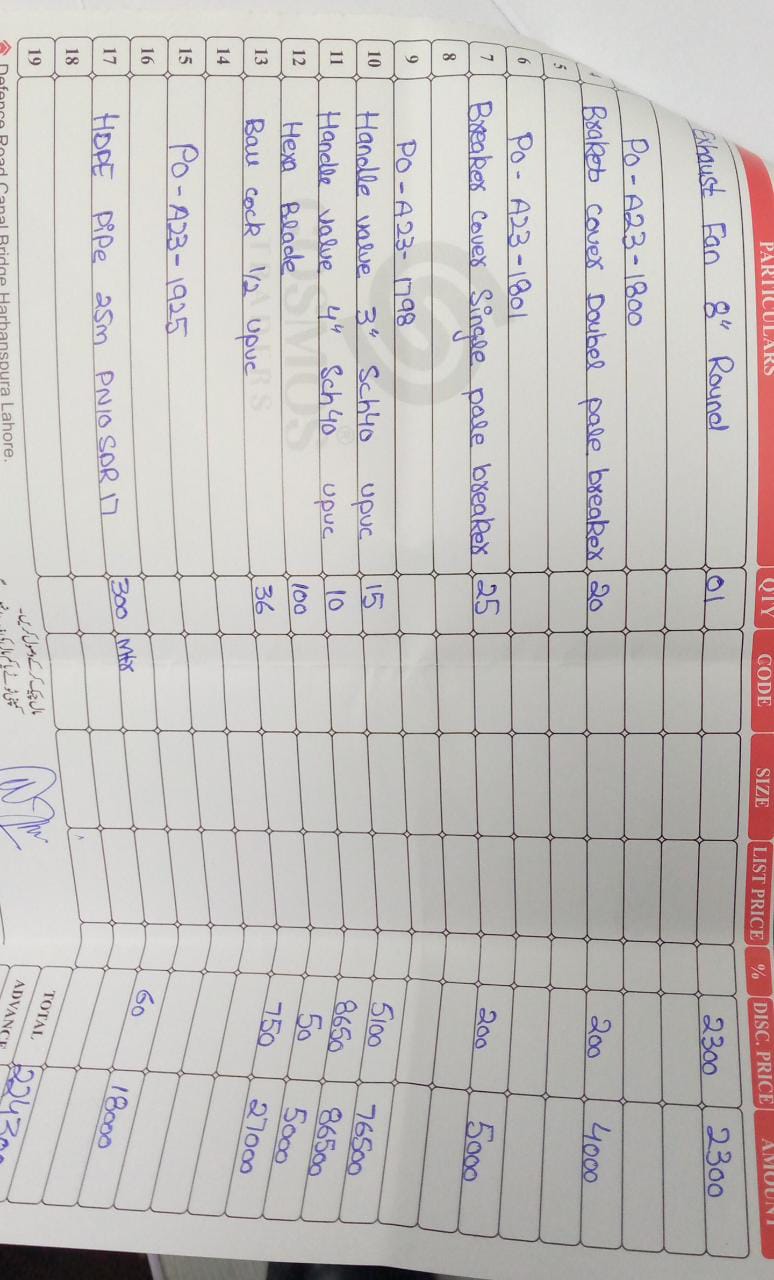 PARTICULARS QTY CODE SIZE LIST PRICE % DISC. PRICE AMOUNT
Exhaust Fan 8" Round 01 2300 2300
PO-A23-1800
4 Braket cover Doubel pale breaker 20 200 4000
5
6 PO-A23-1801
7 Breaker cover Single pale breaker 25 200 5000
8
9 PO-A23-1798
10 Handle valve 3" Sch40 upvc 15 5100 76500
11 Handle valve 4" Sch40 upvc 10 8650 86500
12 Hexa Blade 100 50 5000
13 Ball cock 1/2 upvc 36 750 27000
14
15 PO-A23-1925
16
17 HDPE Pipe 25m PN10 SDR 17 300 Mtr 60 18000
18
19
TOTAL
ADVANCE 224300
COSMOS®
TRADERS
Defence Road Canal Bridge Harbanspura Lahore.